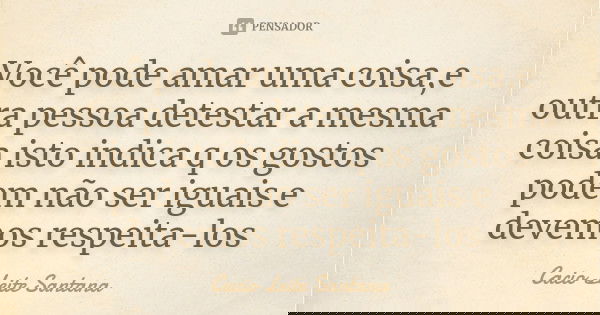 PENSADOR
Você pode amar uma coisa,e
outra pessoa detestar a mesma
coisa isto indica q os gostos
podem não ser iguais e
devemos respeita-los
Cacio Leite Santana